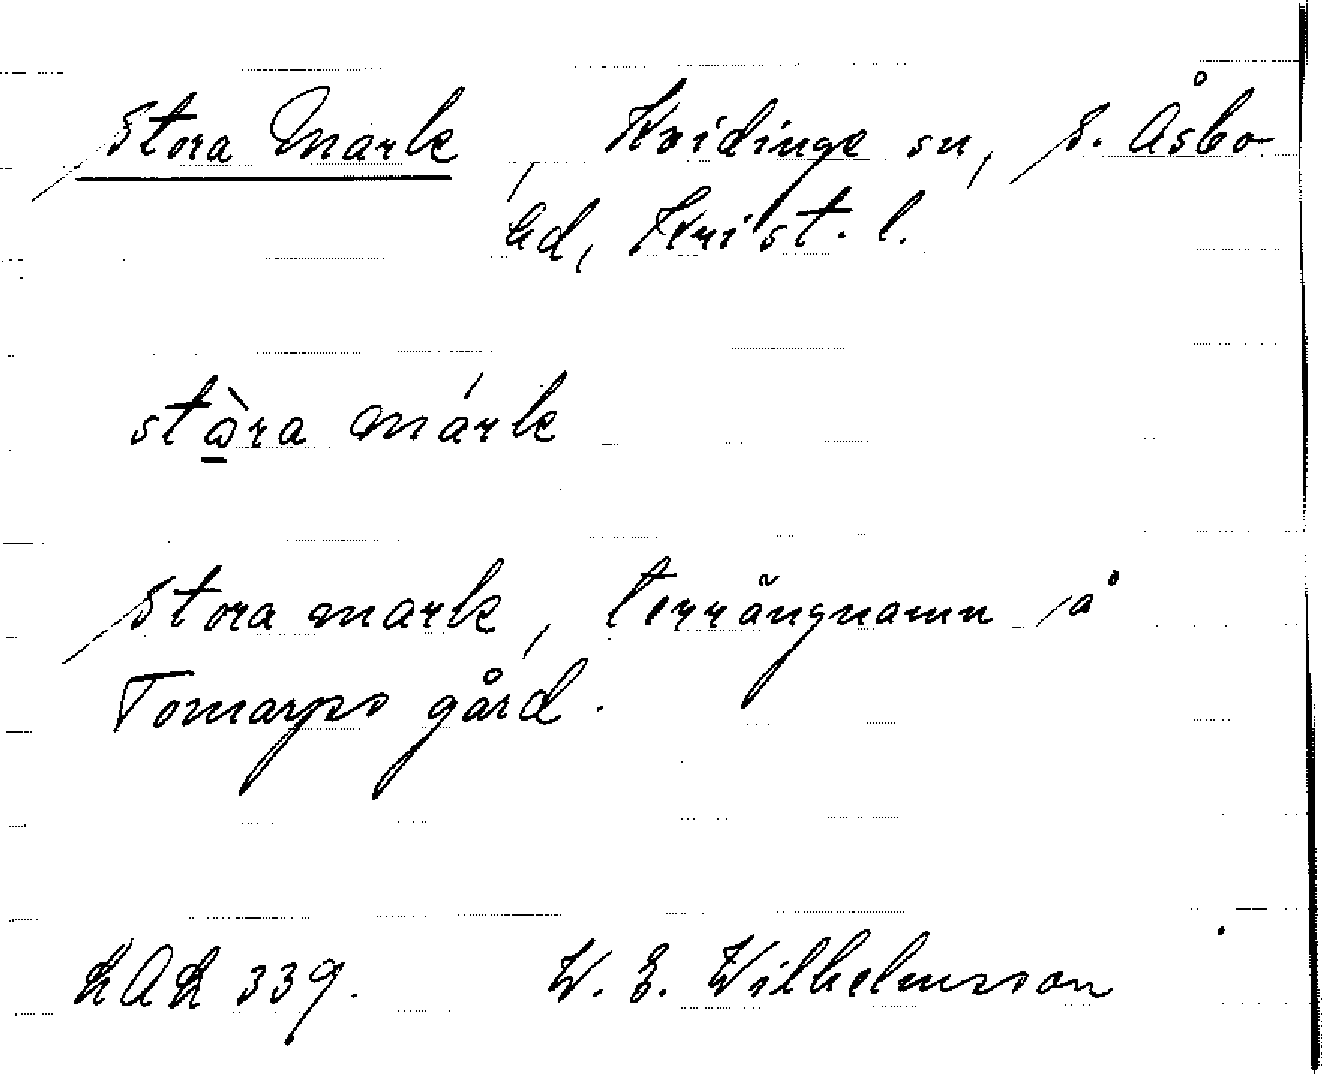 Stora Mark, Kvidinge sn, S. Åsbo
hd, Krist. l.
stὼ̠ra márk
Stora mark, terrängnamn på
Tomarps gård.
LAL 339. W. E. Wilhelmsson